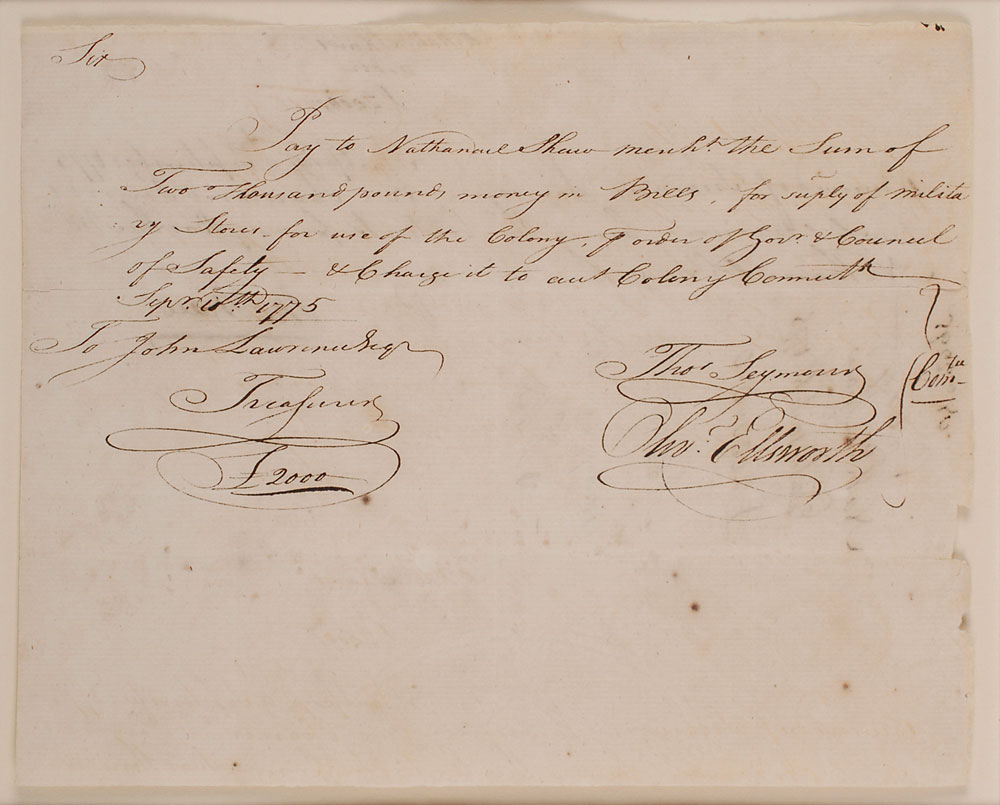 Sir
Pay to Nathanael Shaw mercht. the Sum of
Two Thousand pounds money in Bills, for suply of milita
ry Stores for use of the Colony, ⅌ order of Govr. & Council
of Safety — & Charge it to acct Colony Connectt
Sepr. 1775
To John Lawrence Esqr
Treasurer
£2000
Thos. Seymour
Ellsworth
Comtee